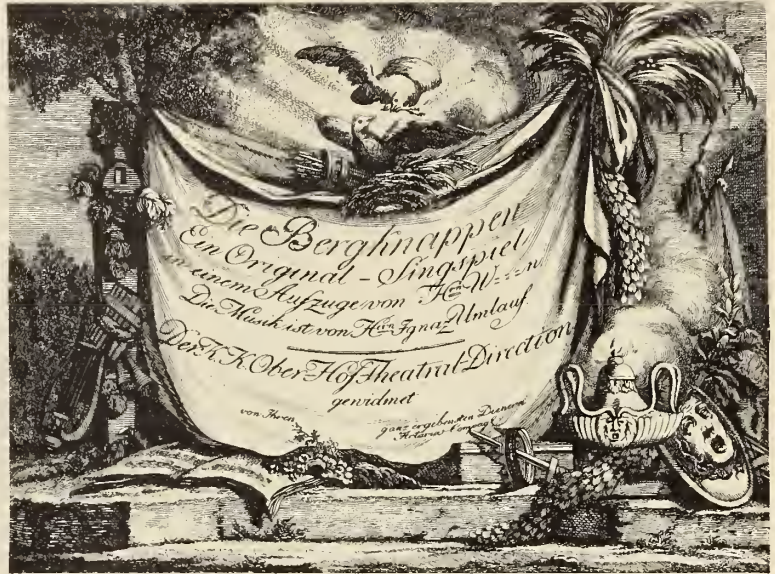 Die Bergknappen
Ein Original-Singspiel
in einem Aufzuge von Hrn W---n.
Die Musik ist von Hrn Ignaz Umlauf.
Der K.K. Ober-Hof-Theatral-Direction
gewidmet
von Ihren ganz ergebensten Dienern
Artaria Compag